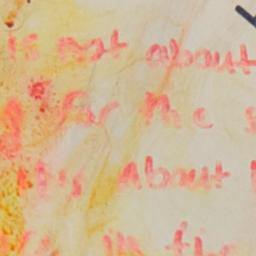 is not about
for the s
it's about
in the